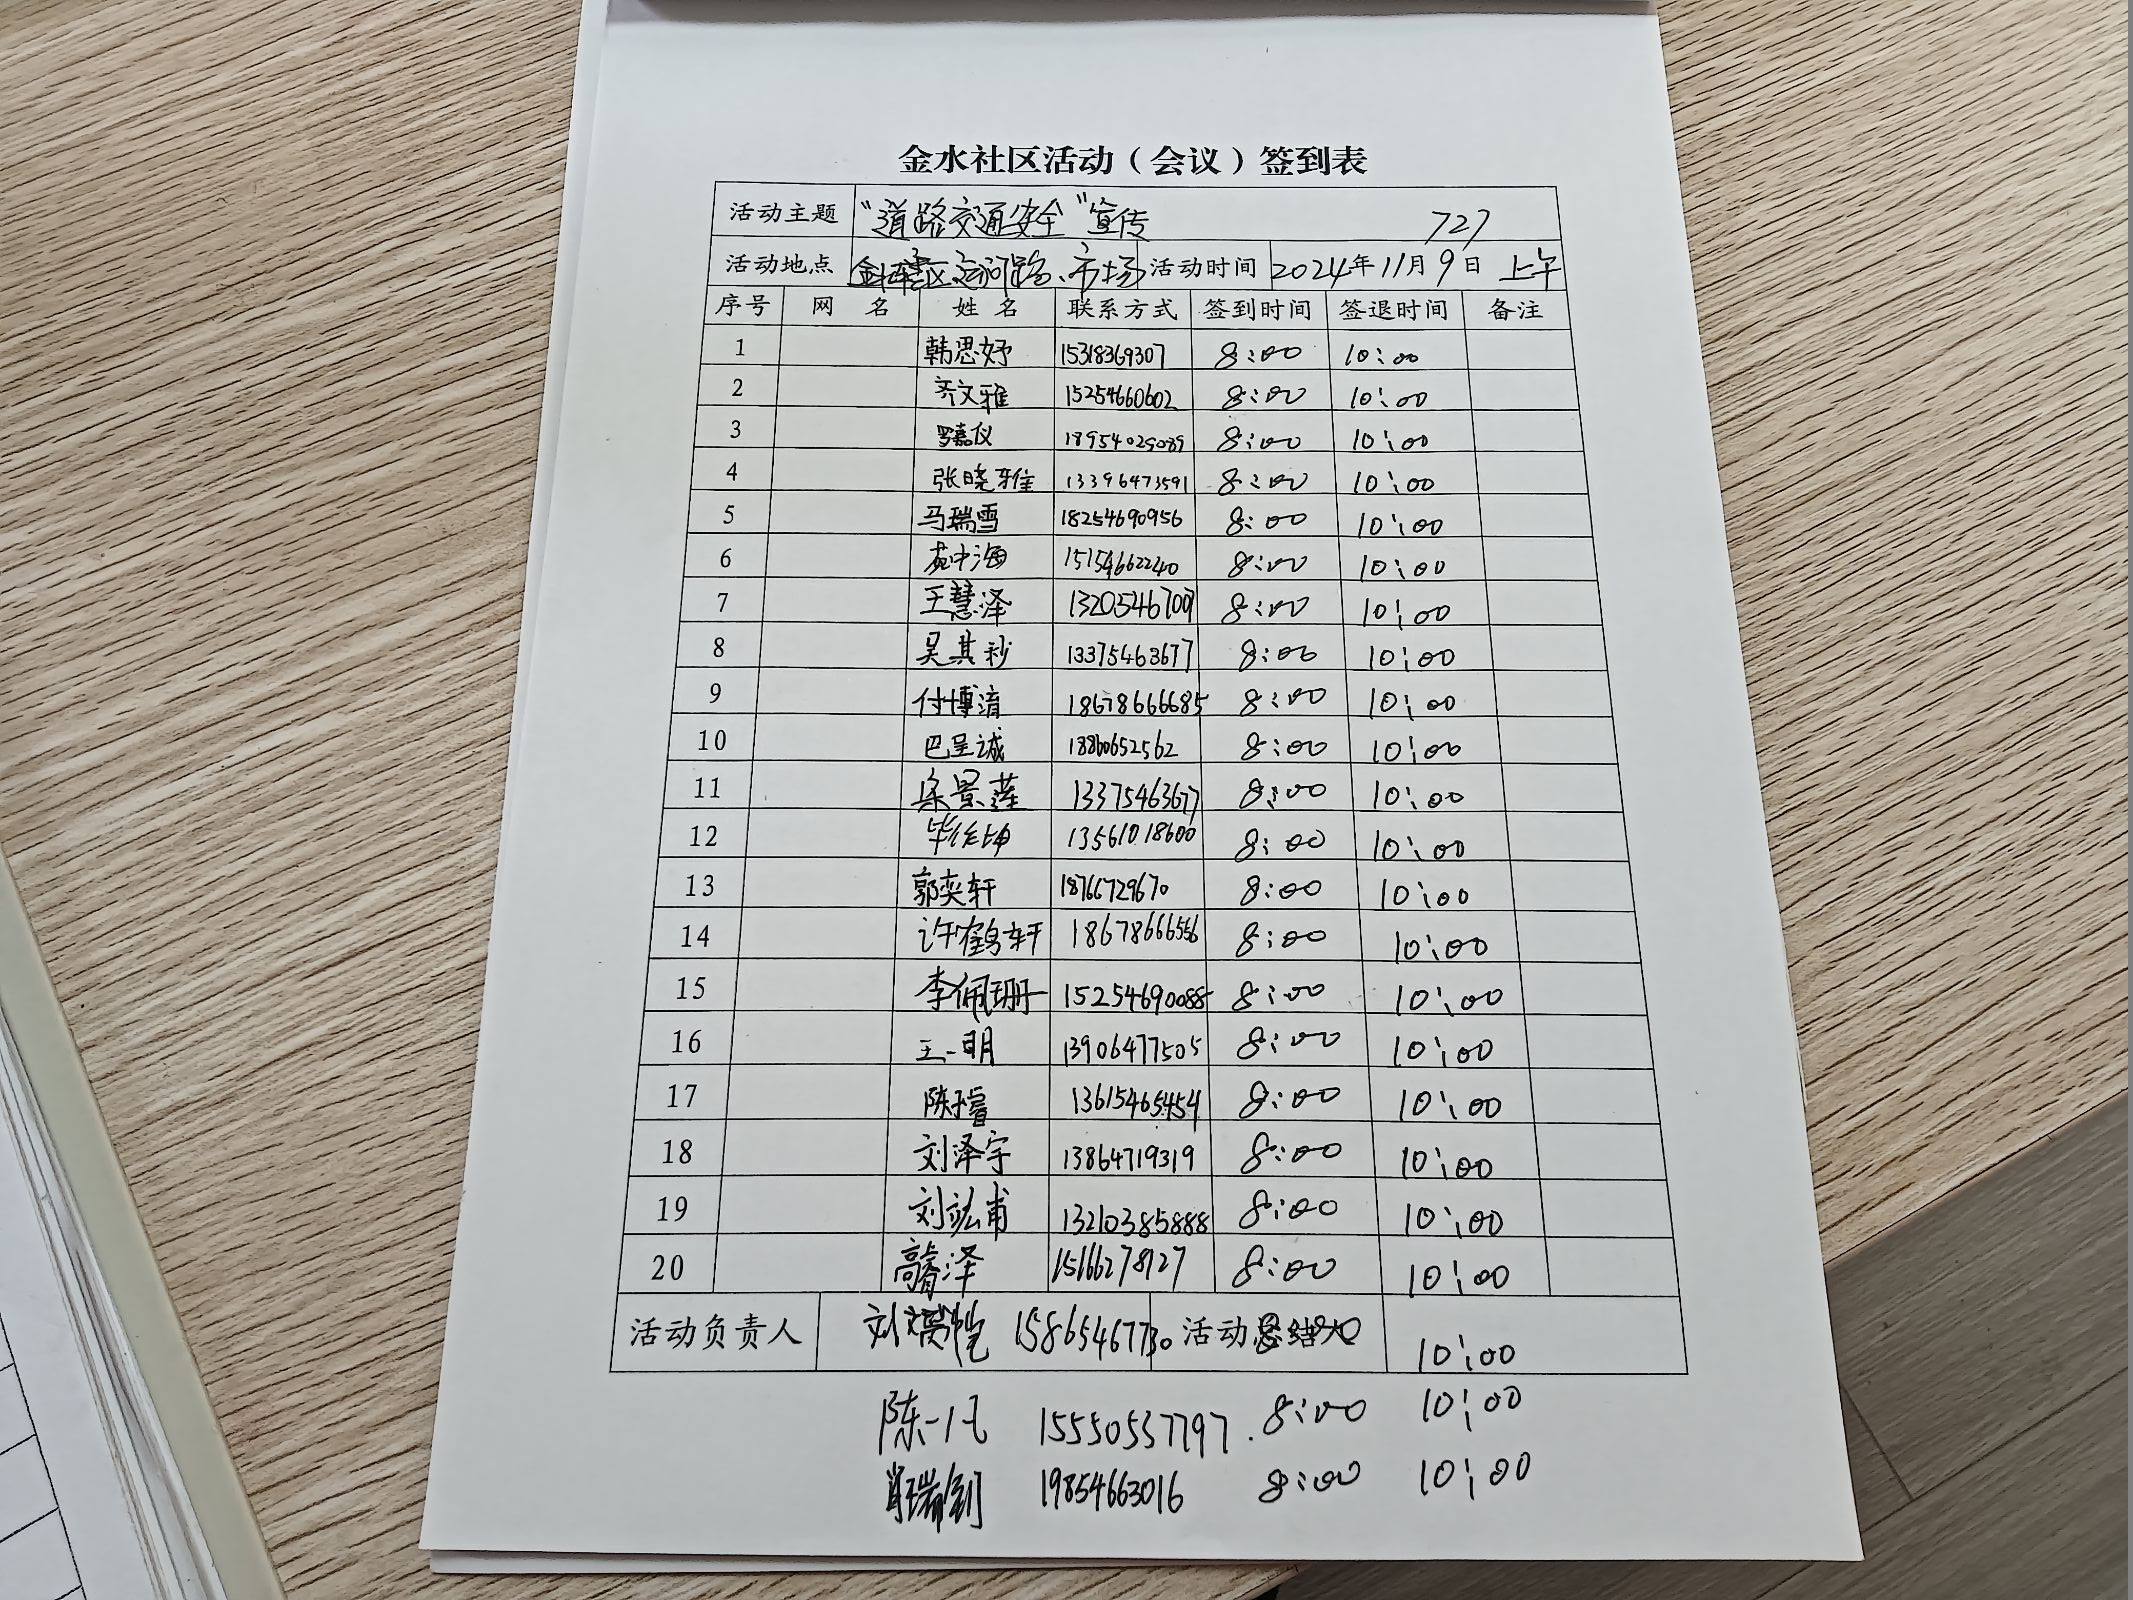 金水社区活动（会议）签到表
活动主题 “道路交通安全”宣传 727
活动地点 运河路、市场 活动时间 2024年11月9日 上午
序号 网 名 姓 名 联系方式 签到时间 签退时间 备注
1 韩思妤 15318369307 8:00 10:00
2 齐文雅 15254660602 8:00 10:00
3 罗嘉仪 18954029089 8:00 10:00
4 张晓雅 13396473591 8:00 10:00
5 马瑞雪 18254690956 8:00 10:00
6 苑中海 15154662240 8:00 10:00
7 王慧泽 13205467009 8:00 10:00
8 吴其衫 13375463677 8:00 10:00
9 付博清 18678666685 8:00 10:00
10 巴呈诚 8:00 10:00
11 梁景莲 13375463677 8:00 10:00
12 13561018600 8:00 10:00
13 郭奕轩 18766729670 8:00 10:00
14 许鹤轩 18678666566 8:00 10:00
15 李佩珊 15254690088 8:00 10:00
16 王一明 13906477505 8:00 10:00
17 陈子睿 13615465454 8:00 10:00
18 刘泽宇 13864719319 8:00 10:00
19 刘竑甫 13210385888 8:00 10:00
20 高睿泽 15166278927 8:00 10:00
活动负责人 15865467730 活动 10:00
陈一凡 15550557797. 8:00 10:00
肖瑞钊 19854663016 8:00 10:00